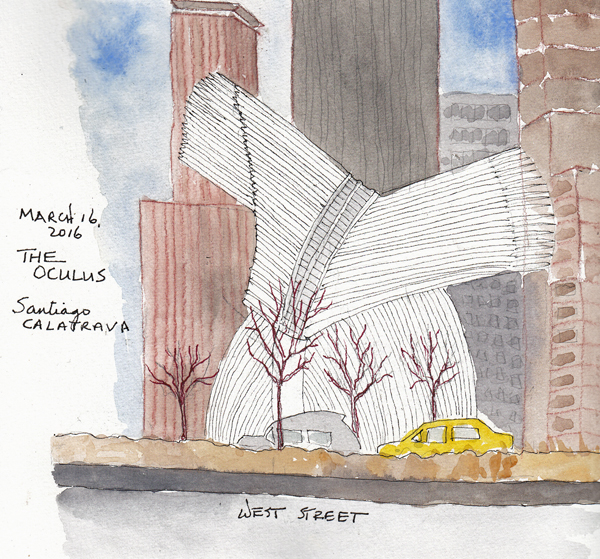 MARCH 16,
2016
THE
OCULUS
Santiago
CALATRAVA
WEST STREET